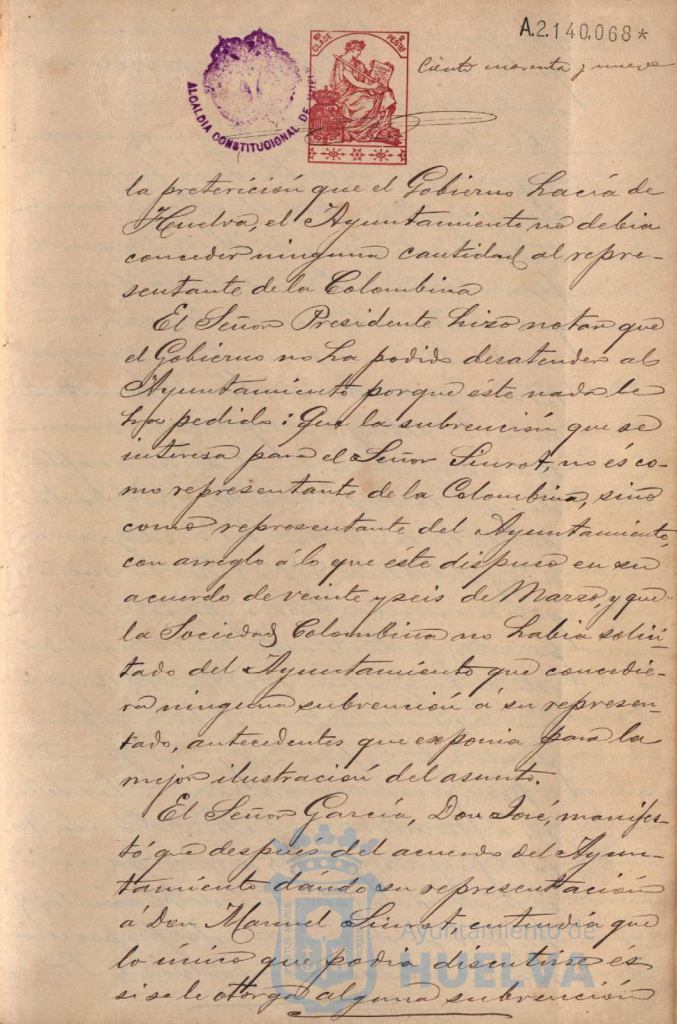 A.2.140,068*
10ª CLASE
2 PESTAS
ALCALDIA CONSTITUCIONAL DE
Ciento noventa y nueve
la preterición que el Gobierno hacía de
Huelva, el Ayuntamiento no debia
conceder ninguna cantidad al repre-
sentante de la Colombina
El Señor Presidente hizo notar que
el Gobierno no ha podido desatender al
Ayuntamiento porque éste nada le
ha pedido: Que la subvención que se
interesa para el Señor Siurot, no és co-
mo representante de la Colombina, sinó
como representante del Ayuntamiento,
con arreglo á lo que éste dispuso en su
acuerdo de veinte y seis de Marzo, y que
la Sociedad Colombina no habia solici-
tado del Ayuntamiento que concedie-
ra ninguna subvención á su represen-
tado, antecedentes que exponia para la
mejor ilustración del asunto.
El Señor García, Don José, manifes-
tó que después del acuerdo del Ayun-
tamiento dando su representación
á Don Manuel Siurot, entendia que
lo único que podia discutirse és
si se le otorga alguna subvención
Ayuntamiento de
HUELVA